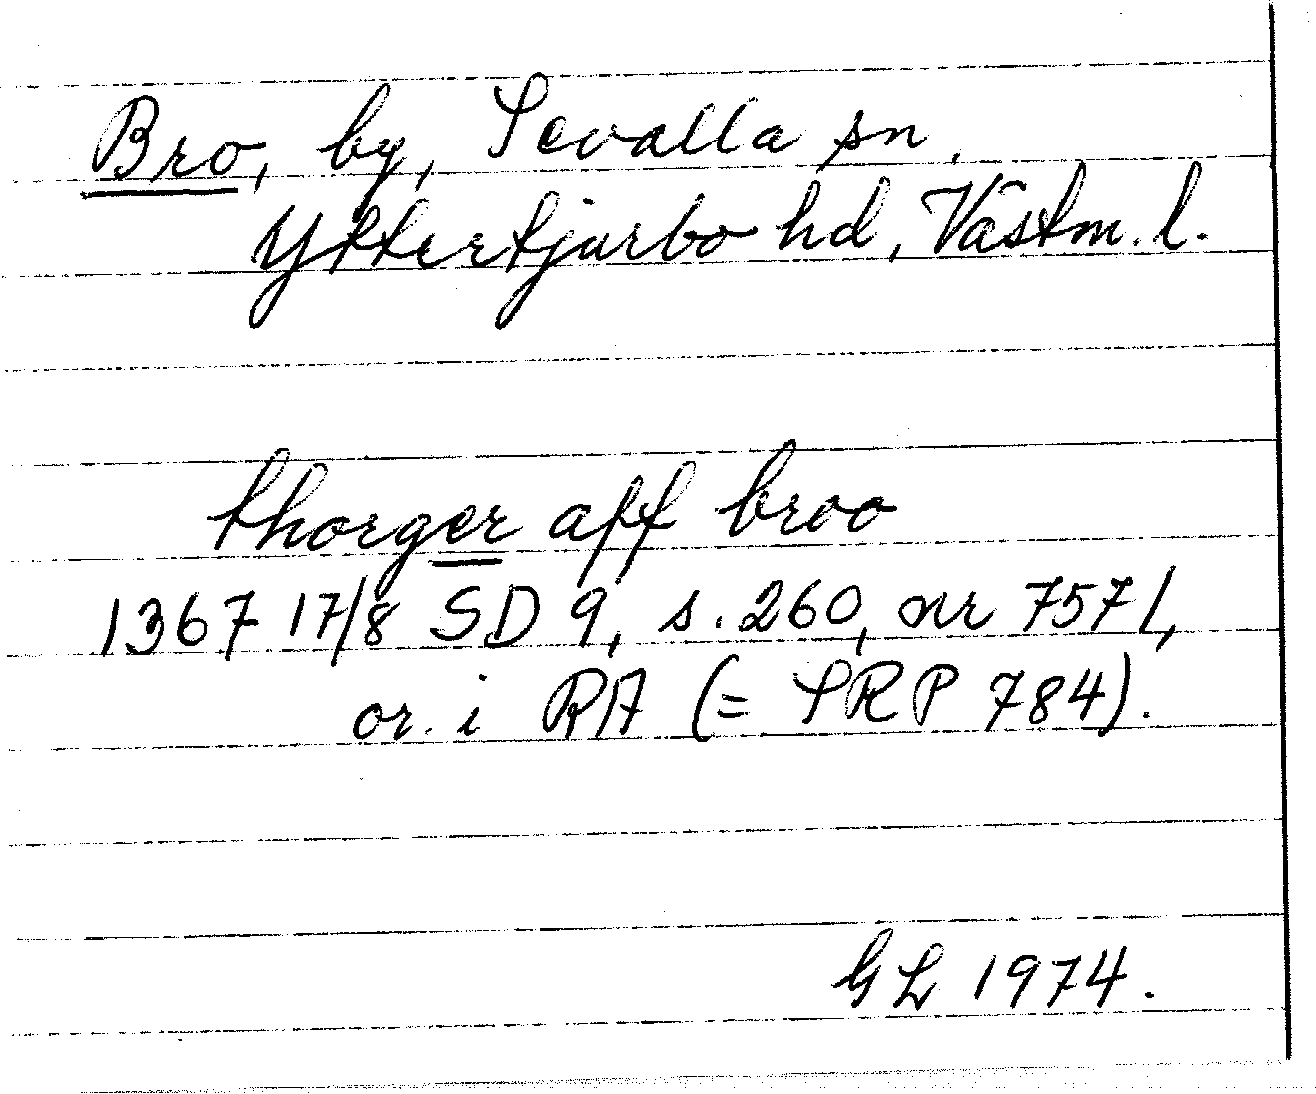 Bro, by, Sevalla sn,
Yttertjurbo hd, Västm. l.
thorger aff broo
1367 17/8 SD 9, s. 260, nr 7571,
or. i RA (= SRP 784).
GL 1974.